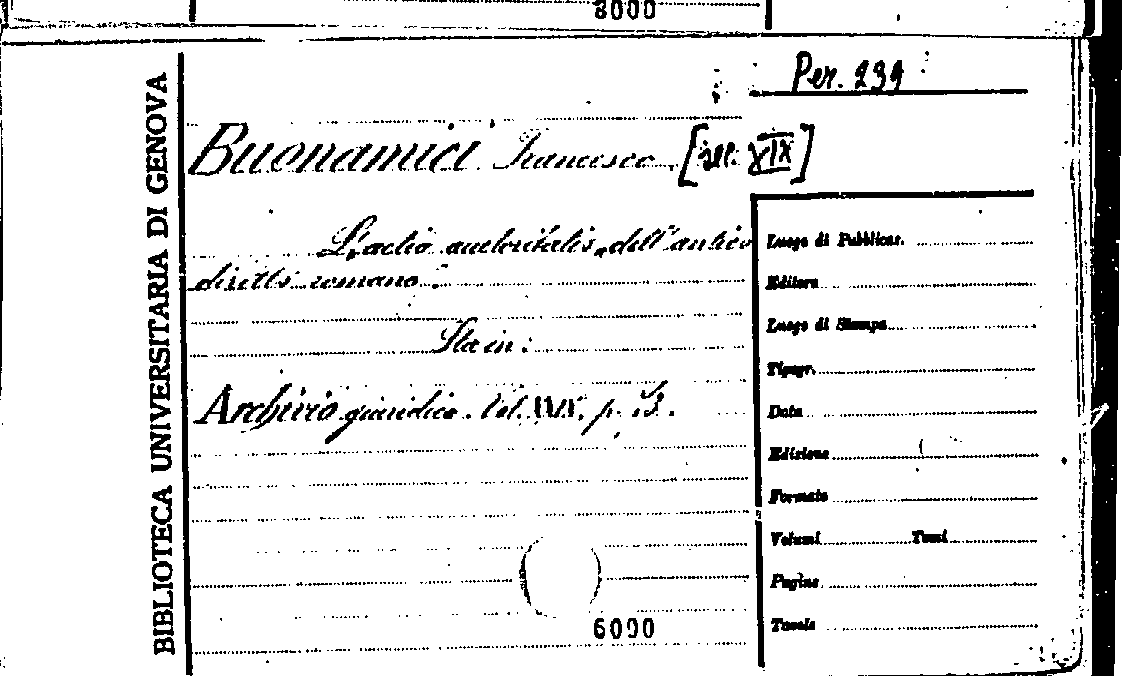 8000
BIBLIOTECA UNIVERSITARIA DI GENOVA
Per. 239
Buonamici Francesco [sec. XIX]
L'actio auctoritatis dell'antico
diritto romano.
Sta in:
Archivio giuridico. Vol. XXIX, p. 3.
Luogo di Pubblicaz.
Editore
Luogo di Stampa
Tipogr.
Data
Edizione
Formato
Volumi Tomi
Pagine
Tavole
6000